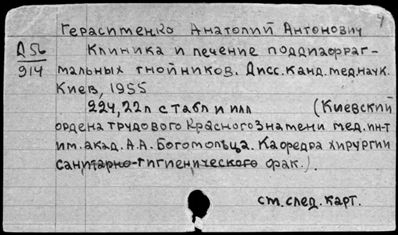 Герасименко Анатолий Антонович 4
Д 56
914
Клиника и лечение поддиафраг-
мальных гнойников. Дисс. канд. мед. наук.
Киев, 1955
224, 22л с табл и илл (Киевский
ордена трудового Красного Знамени мед. ин-т
им. акад. А. А. Богомольца. Кафедра хирургии
санитарно-гигиенического фак.).
см. след. карт.